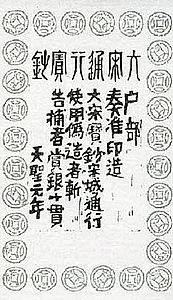 大宋通行寶鈔
户部
奏准印造
大宋鈔城通行
使用偽造者斬
告捕者賞銀千貫
天聖元年